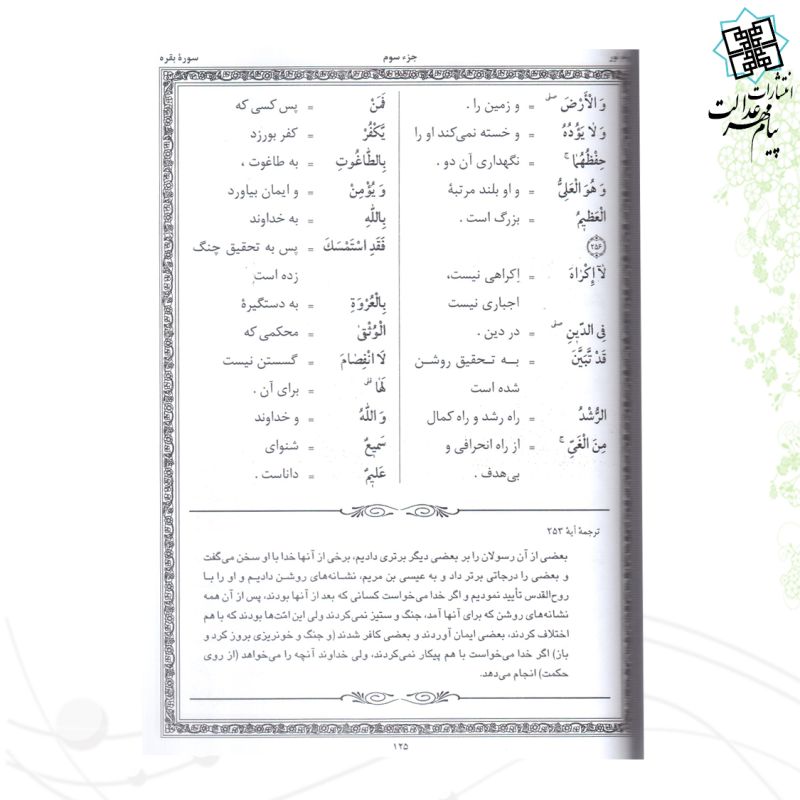 انتشارات
پیام مهر عدالت
جزء سوم
سورهٔ بقره
وَ الْاَرْضَ ۖ = و زمین را .
وَ لَا يَؤُدُهُ = و خسته نمی‌کند او را
حِفْظُهُمَا ۚ = نگهداری آن دو .
وَ هُوَ الْعَلِيُّ = و او بلند مرتبهٔ
الْعَظِيمُ = بزرگ است .
۲۵۶
لَآ اِكْرَاهَ = اکراهی نیست،
اجباری نیست
فِي الدِّينِ ۖ = در دین .
قَدْ تَّبَيَّنَ = به تحقیق روشن
شده است
الرُّشْدُ = راه رشد و راه کمال
مِنَ الْغَيِّ ۚ = از راه انحرافی و
بی‌هدف .
فَمَنْ = پس کسی که
يَّكْفُرْ = کفر بورزد
بِالطَّاغُوتِ = به طاغوت ،
وَ يُؤْمِنْ = و ایمان بیاورد
بِاللّٰهِ = به خداوند
فَقَدِ اسْتَمْسَكَ = پس به تحقیق چنگ
زده است
بِالْعُرْوَةِ = به دستگیرهٔ
الْوُثْقىٰ = محکمی که
لَا انْفِصَامَ = گسستن نیست
لَهَا ۗ = برای آن .
وَ اللّٰهُ = و خداوند
سَمِيعٌ = شنوای
عَلِيمٌ = داناست .
ترجمهٔ آیهٔ ۲۵۳
بعضی از آن رسولان را بر بعضی دیگر برتری دادیم، برخی از آنها خدا با او سخن می‌گفت
و بعضی را درجاتی برتر داد و به عیسی بن مریم، نشانه‌های روشن دادیم و او را با
روح‌القدس تأیید نمودیم و اگر خدا می‌خواست کسانی که بعد از آنها بودند، پس از آن همه
نشانه‌های روشن که برای آنها آمد، جنگ و ستیز نمی‌کردند ولی این امّت‌ها بودند که با هم
اختلاف کردند، بعضی ایمان آوردند و بعضی کافر شدند (و جنگ و خونریزی بروز کرد و
باز) اگر خدا می‌خواست با هم پیکار نمی‌کردند، ولی خداوند آنچه را می‌خواهد (از روی
حکمت) انجام می‌دهد.
۱۲۵